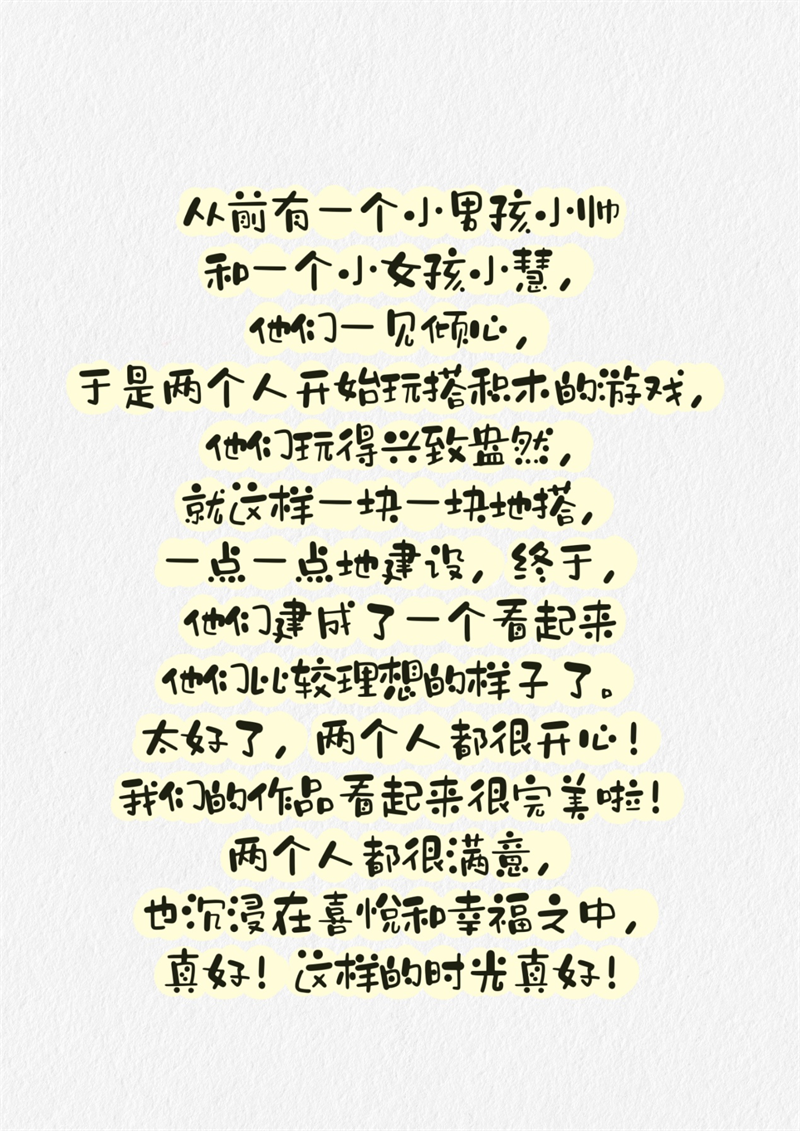 从前有一个小男孩小帅
和一个小女孩小慧，
他们一见倾心，
于是两个人开始玩搭积木的游戏，
他们玩得兴致盎然，
就这样一块一块地搭，
一点一点地建设，终于，
他们建成了一个看起来
他们比较理想的样子了。
太好了，两个人都很开心！
我们的作品看起来很完美啦！
两个人都很满意，
也沉浸在喜悦和幸福之中，
真好！这样的时光真好！